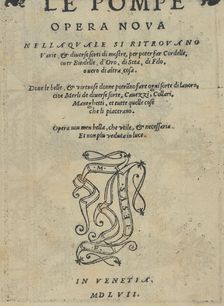 LE POMPE
OPERA NOVA
NELLA QVALE SI RITROVANO
Varie, & diuerse sorti di mostre, per poter far Cordelle,
ouer Bindelle, d'Oro, di Seta, di Filo,
ouero di altra cosa.
Doue le belle, & virtuose donne potranno fare ogni sorte di lauoro,
cioe Merli de diuerse sorte, Cauezzi, Collari,
Maneghetti, et tutte quelle cose
che li piaceranno.
Opera non men bella, che vtile, & necessaria.
Et non piu veduta in luce.
IN VENETIA,
MDLVII.